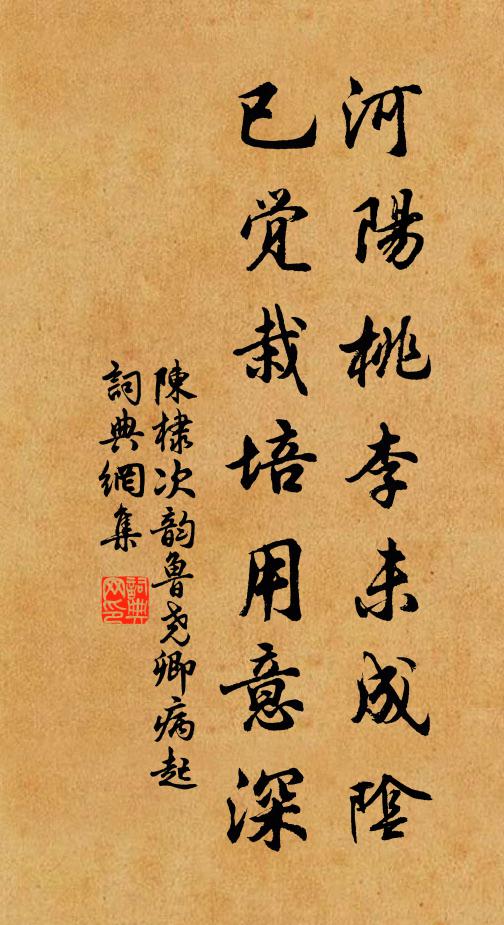 河陽桃李未成陰
已覚栽培用意深
陳棣次韵魯尭卿病起
詞典網集
詞典网印